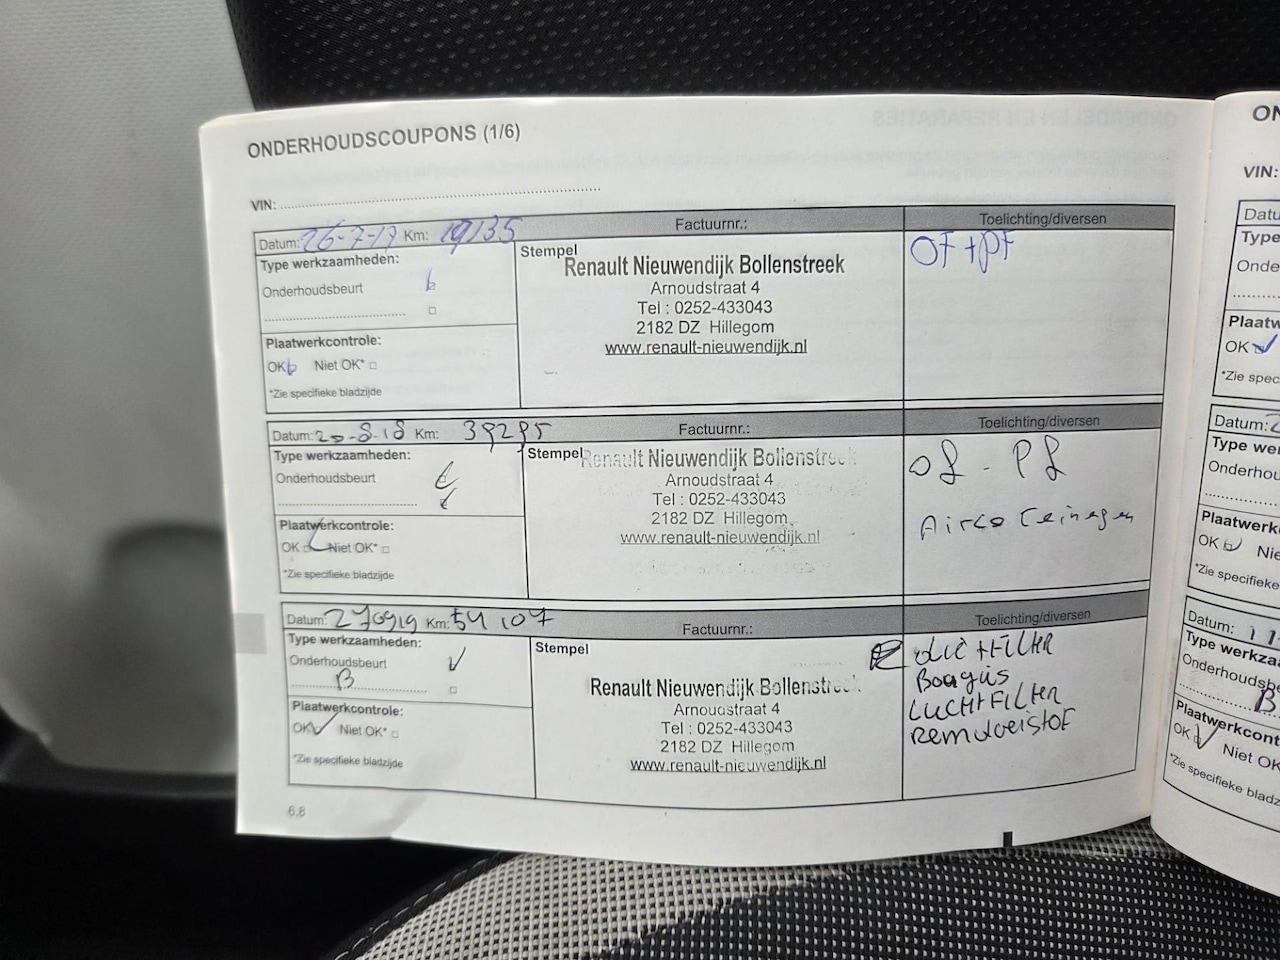 ONDERHOUDSCOUPONS (1/6)
VIN:
Datum: 26-7-17 Km: 19135 Factuurnr.: Toelichting/diversen
Type werkzaamheden:
Onderhoudsbeurt
Plaatwerkcontrole:
OK Niet OK*
*Zie specifieke bladzijde
Stempel
Renault Nieuwendijk Bollenstreek
Arnoudstraat 4
Tel : 0252-433043
2182 DZ Hillegom
www.renault-nieuwendijk.nl
OF + PF
Datum: 20-8-18 Km: 39295 Factuurnr.: Toelichting/diversen
Type werkzaamheden:
Onderhoudsbeurt
Plaatwerkcontrole:
OK Niet OK*
*Zie specifieke bladzijde
Stempel
Renault Nieuwendijk Bollenstreek
Arnoudstraat 4
Tel : 0252-433043
2182 DZ Hillegom
www.renault-nieuwendijk.nl
of - Pf
Airco
Datum: 270919 Km: 54107 Factuurnr.: Toelichting/diversen
Type werkzaamheden:
Onderhoudsbeurt
B
Plaatwerkcontrole:
OK Niet OK*
*Zie specifieke bladzijde
Stempel
Renault Nieuwendijk Bollenstreek
Arnoudstraat 4
Tel : 0252-433043
2182 DZ Hillegom
www.renault-nieuwendijk.nl
OLIE + FILTER
Bougies
LUCHTFILTER
Remvloeistof
6.8
ON
VIN:
Datu
Type
Onde
Plaatw
OK
*Zie spec
Datum:
Type we
Onderhou
Plaatwerk
OK Nie
*Zie specifieke
Datum: 11
Type werkza
Onderhoudsbe
B
Plaatwerkcont
OK Niet OK
*Zie specifieke bladz